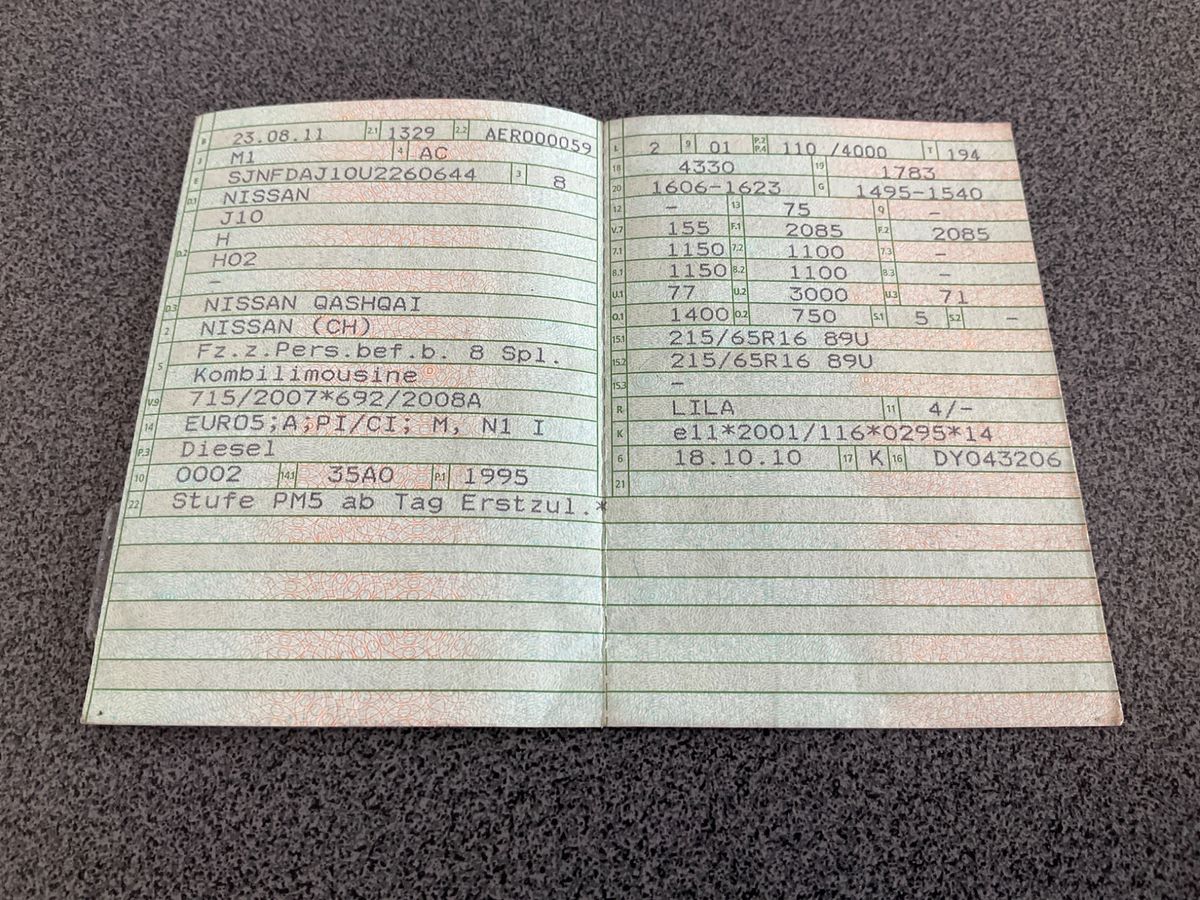 B 23.08.11 2.1 1329 2.2 AER000059
J M1 4 AC
E SJNFDAJ10U2260644 3 8
D.1 NISSAN
D.2 J10
H
H02
–
D.3 NISSAN QASHQAI
2 NISSAN (CH)
5 Fz.z.Pers.bef.b. 8 Spl.
Kombilimousine
V.9 715/2007*692/2008A
14 EURO5;A;PI/CI; M, N1 I
P.3 Diesel
10 0002 14.1 35A0 P.1 1995
22 Stufe PM5 ab Tag Erstzul.*
L 2 9 01 P.2 P.4 110 /4000 T 194
18 4330 19 1783
20 1606-1623 G 1495-1540
12 – 13 75 Q –
V.7 155 F.1 2085 F.2 2085
7.1 1150 7.2 1100 7.3 –
8.1 1150 8.2 1100 8.3 –
U.1 77 U.2 3000 U.3 71
O.1 1400 O.2 750 S.1 5 S.2 –
15.1 215/65R16 89U
15.2 215/65R16 89U
15.3 –
R LILA 11 4/-
K e11*2001/116*0295*14
6 18.10.10 17 K 16 DY043206
21